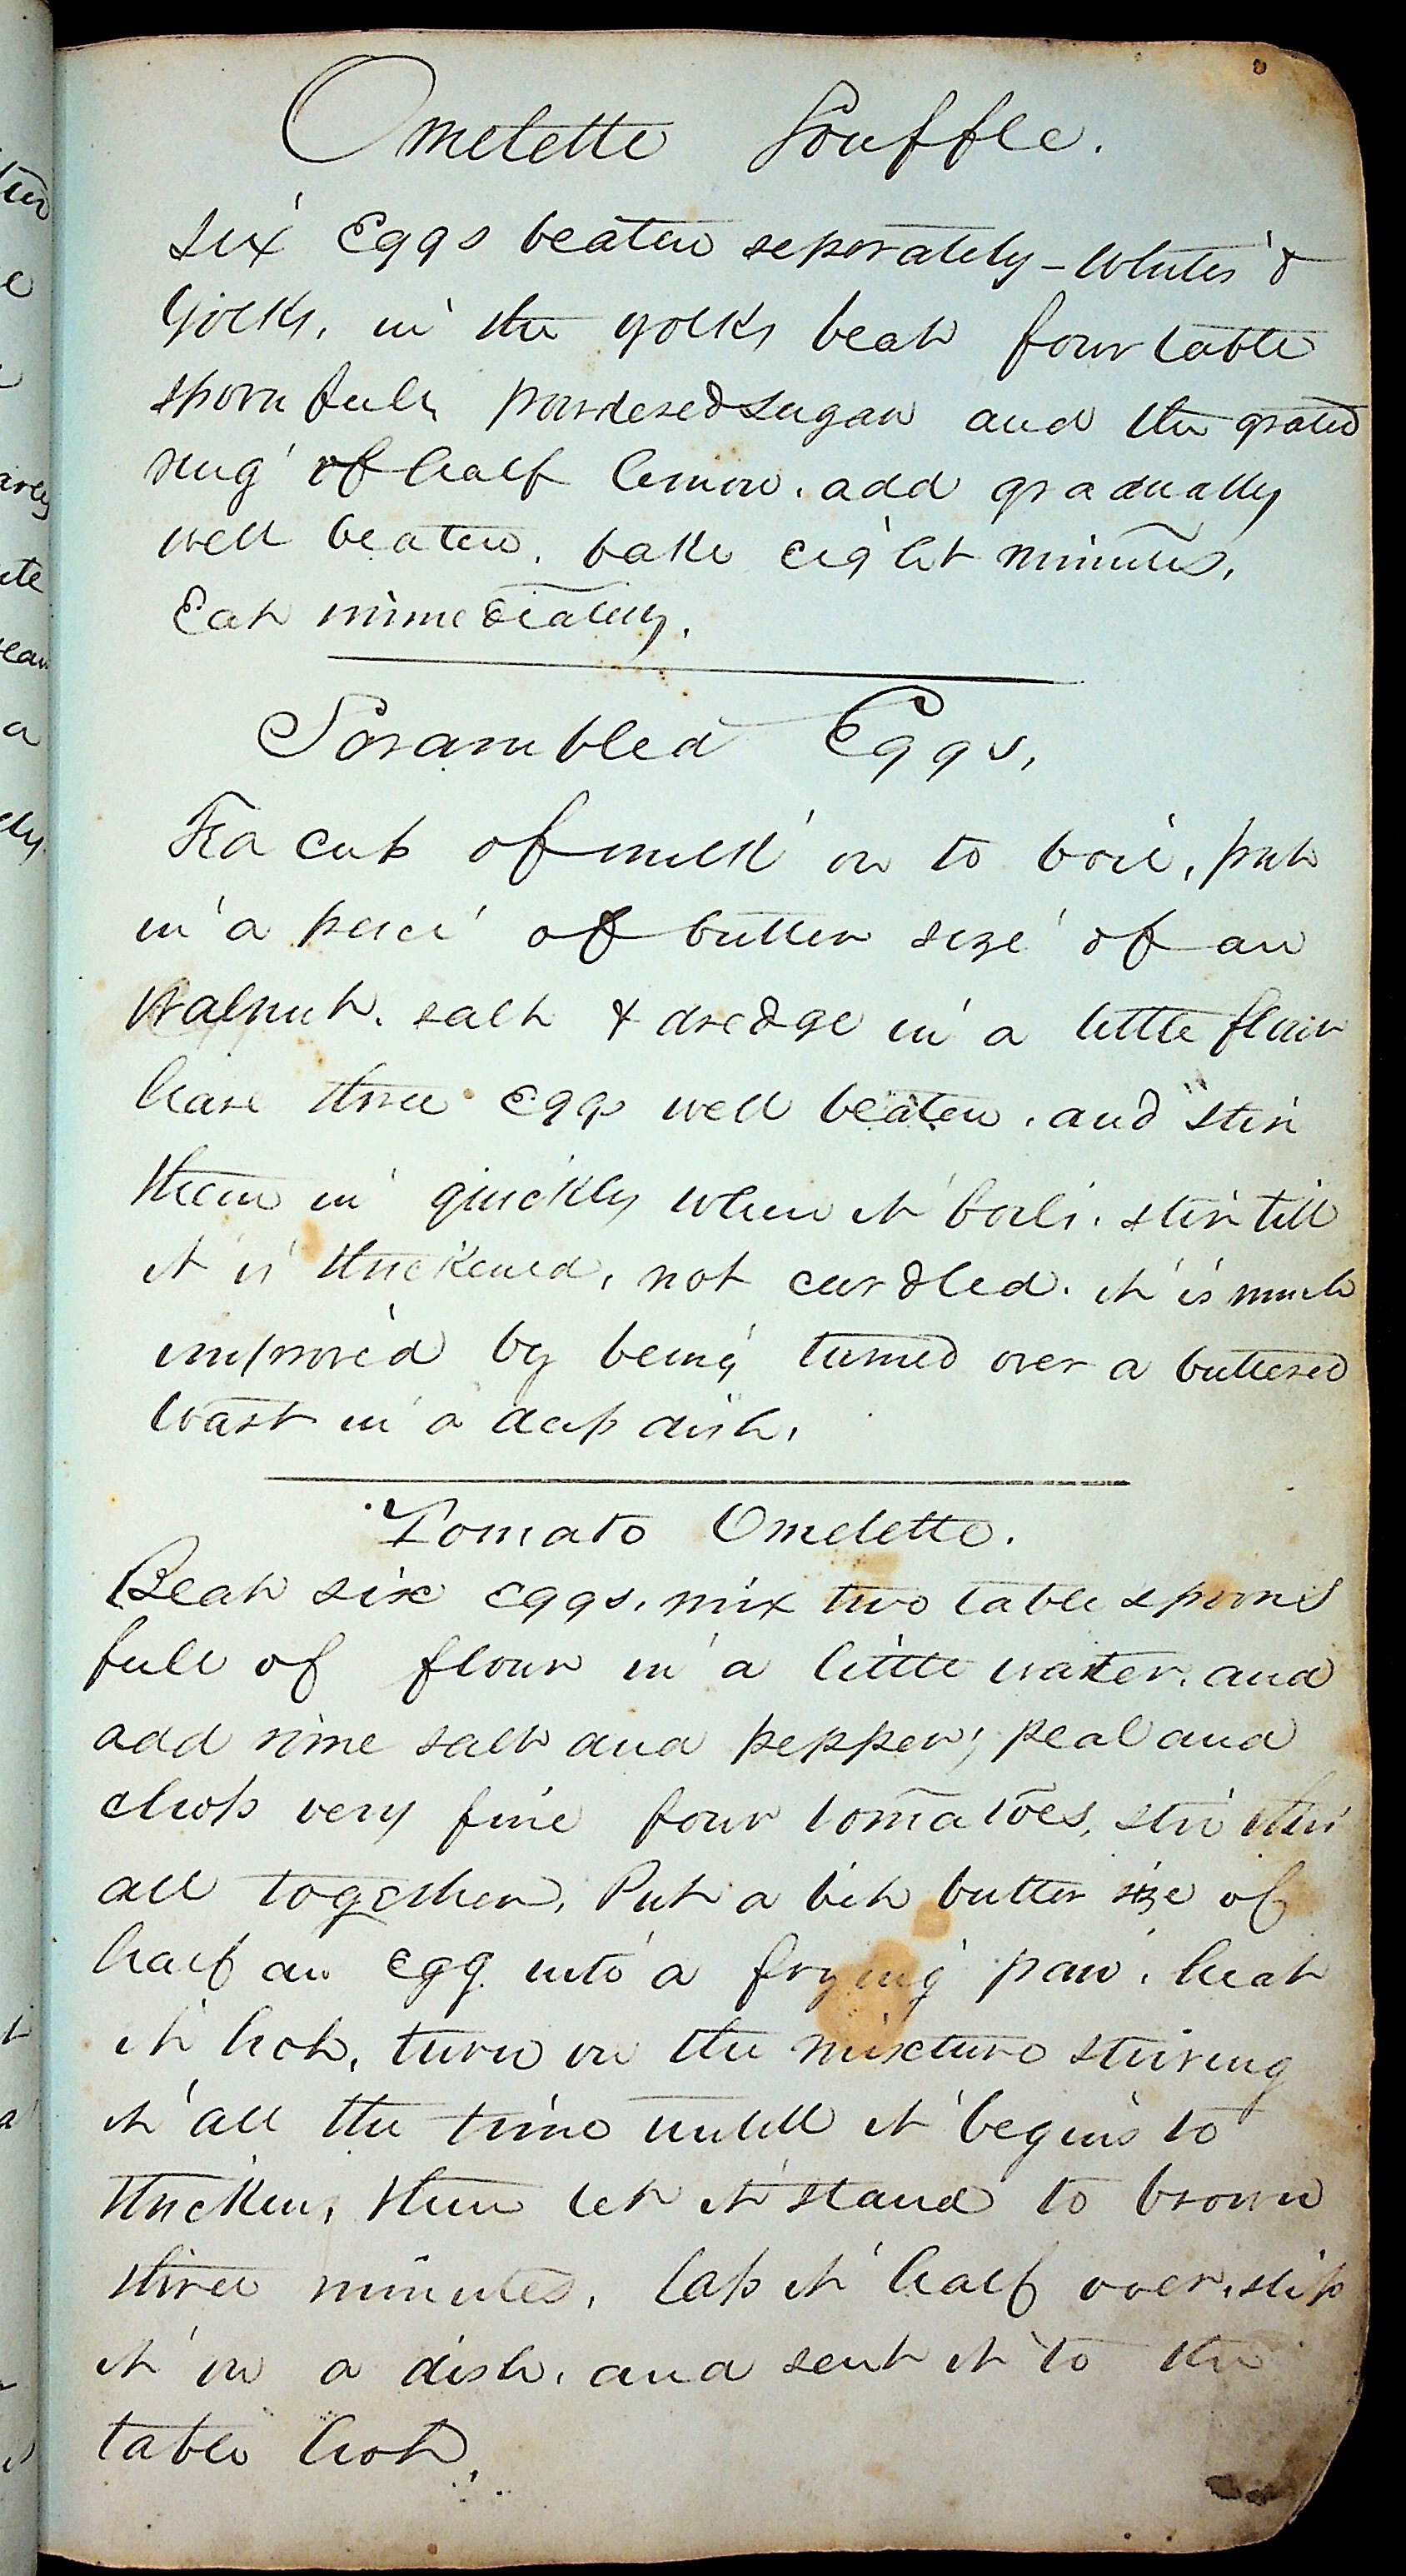 Omelette Souffle.
six Eggs beaten seperately - Whites &
Yolks. in the yolks beat four table
spoon fulls powdered sugar and the grated
ring of half lemon. add gradually
well beaten. bake eight minutes.
Eat immediately.
Scrambled Eggs.
Tea cup of milk on to boil, put
in a peice of butter size of an
Walnut. salt & dredge in a little flour
have three Eggs well beaten. and stir
them in quickly when it boils. stir till
it is thickened, not curdled. it is much
improved by being turned over a buttered
toast in a deep dish.
Tomato Omelette.
Beat six eggs. mix two table spoons
full of flour in a little water. and
add some salt and pepper; peal and
chop very fine four tomatoes, stir this
all together. Put a bit butter size of
half an egg into a frying pan. heat
it hot, turn in the mixture stiring
it all the time untill it begins to
thicken, then let it stand to brown
three minutes. lap it half over. slip
it on a dish. and sent it to the
table hot.
ten
e
arely
ute
ean
a
dy.
t
a